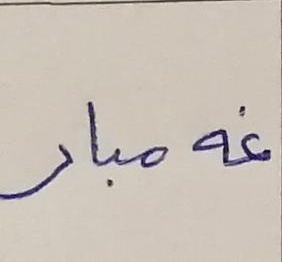 غه مبار